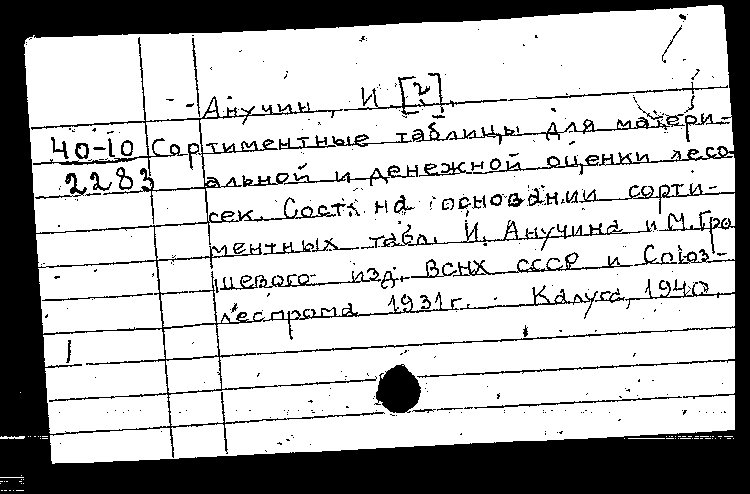 Анучин, И [2].
40-10 Сортиментные таблицы для матери-
2283 альной и денежной оценки лесо-
сек. Сост. на основании сорти-
ментных табл. И. Анучина и М. Гро
шевого изд. ВСНХ СССР и Союз-
леспрома 1931 г. Калуга, 1940.
1